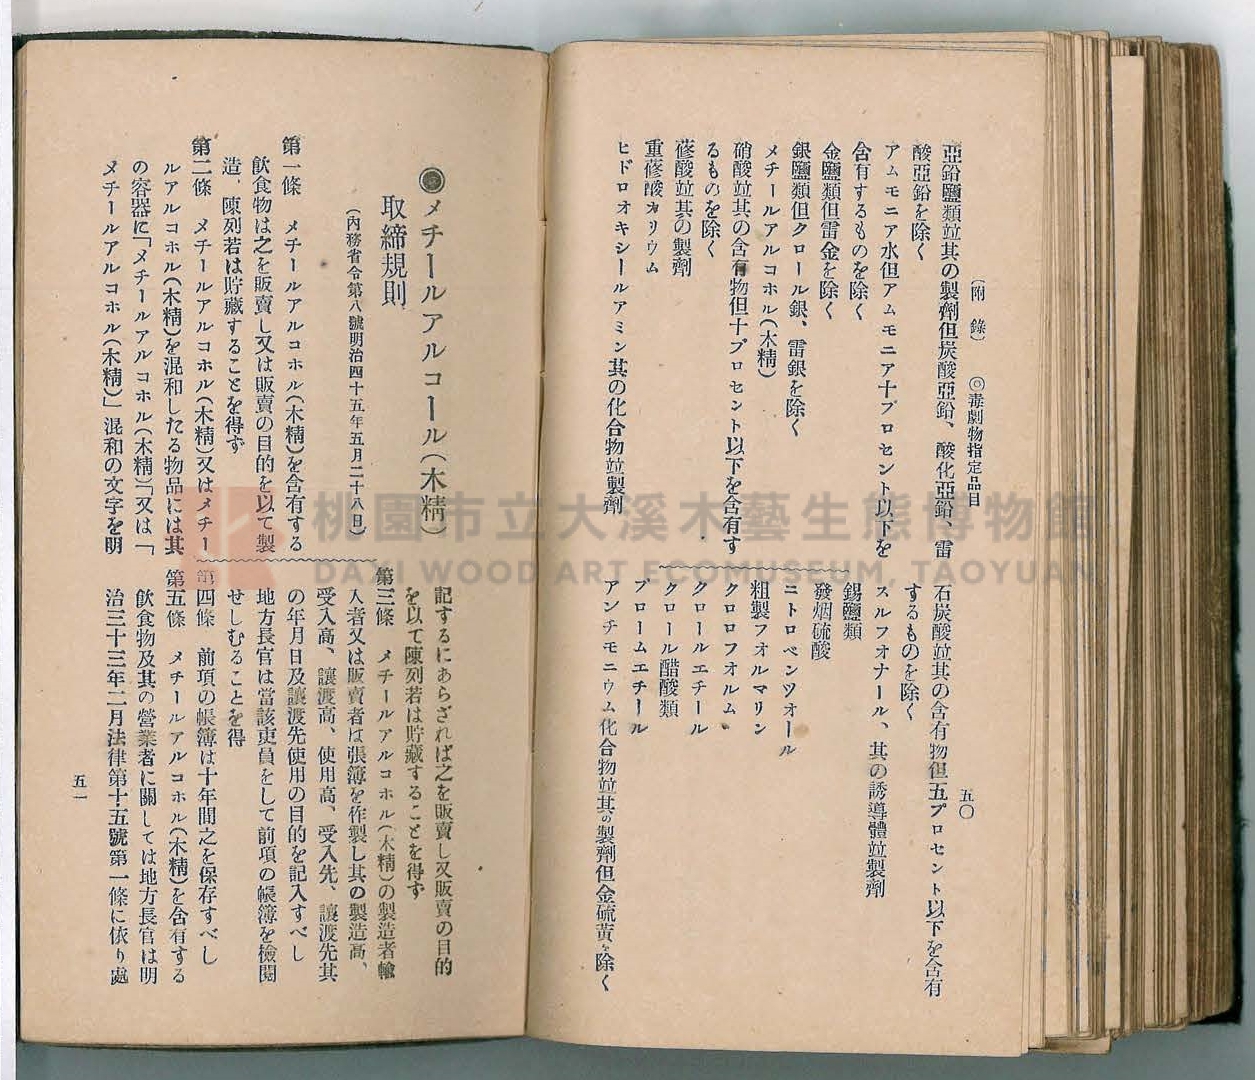 (附錄) ◎毒劇物指定品目 五〇
亞鉛鹽類竝其の製劑但炭酸亞鉛、酸化亞鉛、雷
酸亞鉛を除く
アムモニア水但アムモニア十プロセント以下を
含有するものを除く
金鹽類但雷金を除く
銀鹽類但クロール銀、雷銀を除く
メチールアルコホル(木精)
硝酸竝其の含有物但十プロセント以下を含有す
るものを除く
蓚酸竝其の製劑
重蓚酸カリウム
ヒドロオキシールアミン其の化合物竝製劑
石炭酸竝其の含有物但五プロセント以下を含有
するものを除く
スルフオナール、其の誘導體竝製劑
錫鹽類
發烟硫酸
ニトロベンツオール
粗製フオルマリン
クロロフオルム
クロールエチール
クロール醋酸類
ブロームエチール
アンチモニウム化合物竝其の製劑但金硫黃を除く
◉メチールアルコール(木精)
取締規則
(內務省令第八號明治四十五年五月二十八日)
第一條 メチールアルコホル(木精)を含有する
飮食物は之を販賣し又は販賣の目的を以て製
造、陳列若は貯藏することを得ず
第二條 メチールアルコホル(木精)又はメチー
ルアルコホル(木精)を混和したる物品には其
の容器に「メチールアルコホル(木精)」又は「
メチールアルコホル(木精)」混和の文字を明
記するにあらざれば之を販賣し又販賣の目的
を以て陳列若は貯藏することを得ず
第三條 メチールアルコホル(木精)の製造者輸
入者又は販賣者は張簿を作製し其の製造高、
受入高、讓渡高、使用高、受入先、讓渡先其
の年月日及讓渡先使用の目的を記入すべし
地方長官は當該吏員をして前項の帳簿を檢閱
せしむることを得
第四條 前項の帳簿は十年間之を保存すべし
第五條 メチールアルコホル(木精)を含有する
飮食物及其の營業者に關しては地方長官は明
治三十三年二月法律第十五號第一條に依り處
五一
桃園市立大溪木藝生態博物館
DAXI WOOD ART ECOMUSEUM, TAOYUAN